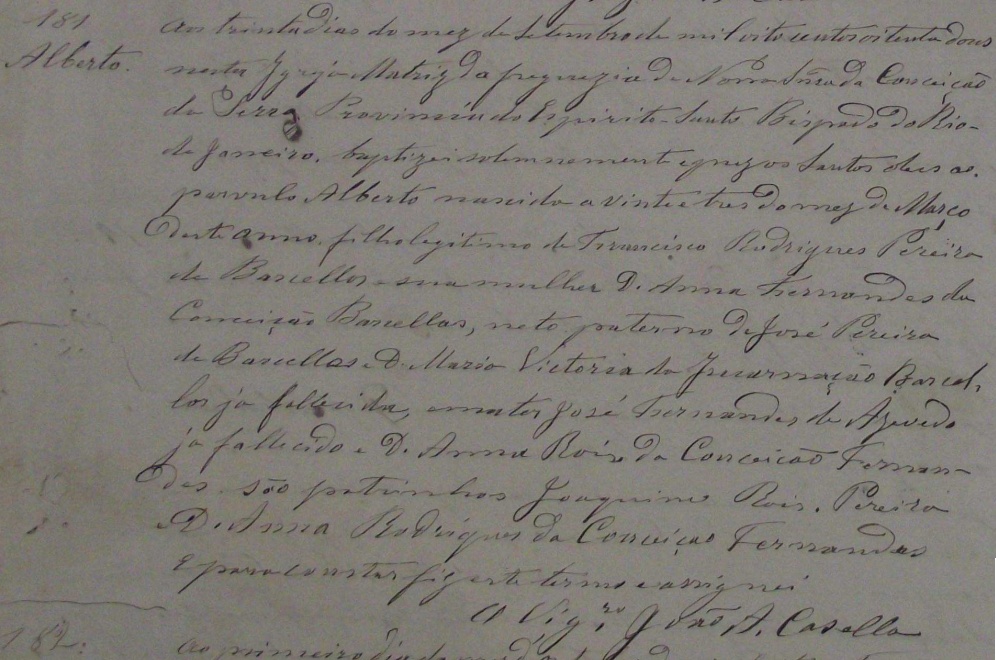 181
Alberto.
Aos trinta dias do mez de Setembro de mil oito centos oitenta dous
nesta Igreja Matriz da freguezia de Nossa Snra da Conceição
da Serra Provincia do Espirito-Santo Bispado do Rio-
de Janeiro, baptizei solemnemente e puz os Santos oleos ao
parvulo Alberto nascido a vinte e tres do mez de Março
deste anno, filho legitimo de Francisco Rodrigues Pereira
de Barcellos e sua mulher D. Anna Fernandes da
Conceição Barcellos, neto paterno de José Pereira
de Barcellos e D. Maria Victoria da Incarnação Barcel-
los já fallecida, e mater José Fernandes de Azevedo
já fallecido e D. Anna Roiz da Conceicão Fernan-
des são patrinhos Joaquim Rois. Pereira
e D. Anna Rodrigues da Conceiçao Fernandes
E para constar fiz este termo e assignei
O Vigro João A. Casella
182:
Ao primeiro dia do mez de